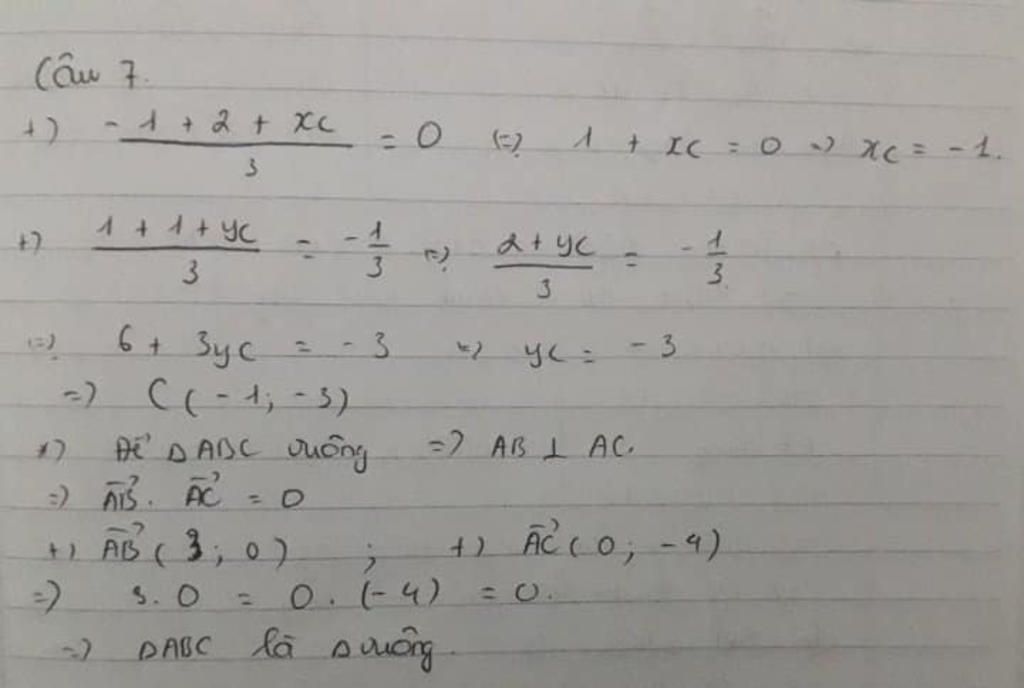 Câu 7.
+) (-1 + 2 + xC)/3 = 0 (=) 1 + xC = 0 => xC = -1.
+) (1 + 1 + yC)/3 = -1/3 (=) (2 + yC)/3 = -1/3.
(=) 6 + 3yC = -3 (=) yC = -3
=) C(-1; -3)
*) Để ΔABC vuông =) AB ⊥ AC.
=) \vec{AB}. \vec{AC} = 0
+) \vec{AB} (3; 0) ; +) \vec{AC} (0; -4)
=) 3.0 = 0.(-4) = 0.
=) ΔABC là Δvuông.